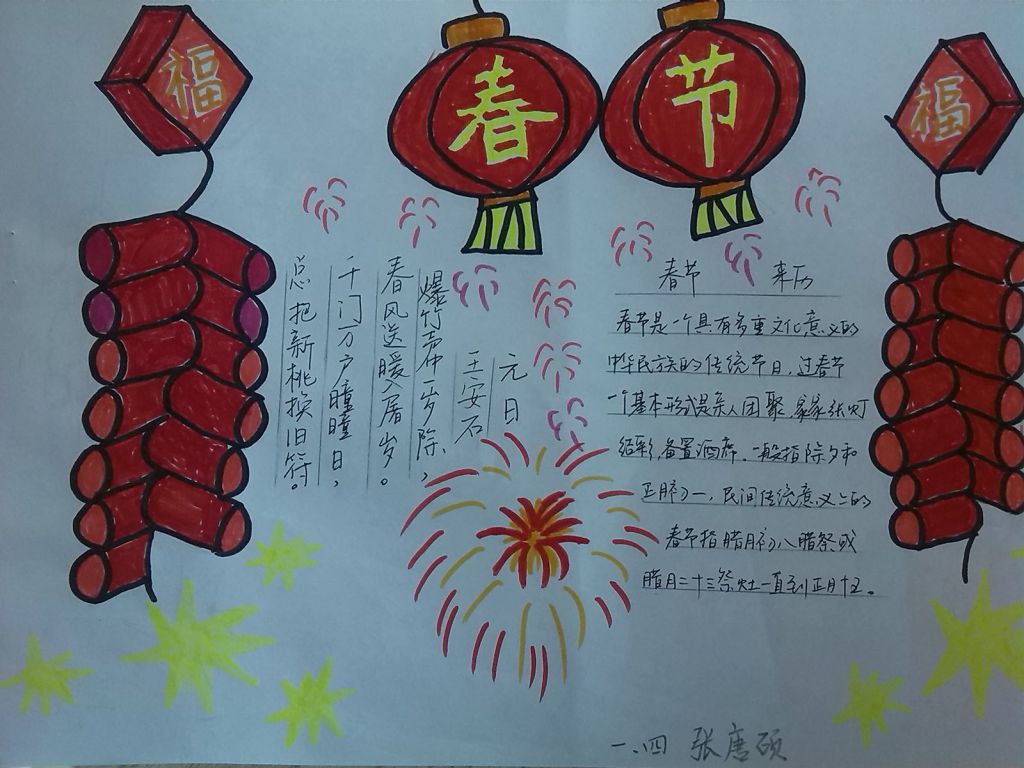 福
春节
福
元日
王安石
爆竹声中一岁除，
春风送暖入屠苏。
千门万户瞳瞳日，
总把新桃换旧符。
春节 来历
春节是一个具有多重文化意义的
中华民族的传统节日，过春节
一个基本形式是亲人团聚，家家张灯
结彩，备置酒席。一般指除夕和
正月初一，民间传统意义上的
春节指腊月初八腊祭或
腊月二十三祭灶一直到正月十五。
一、四 张唐硕